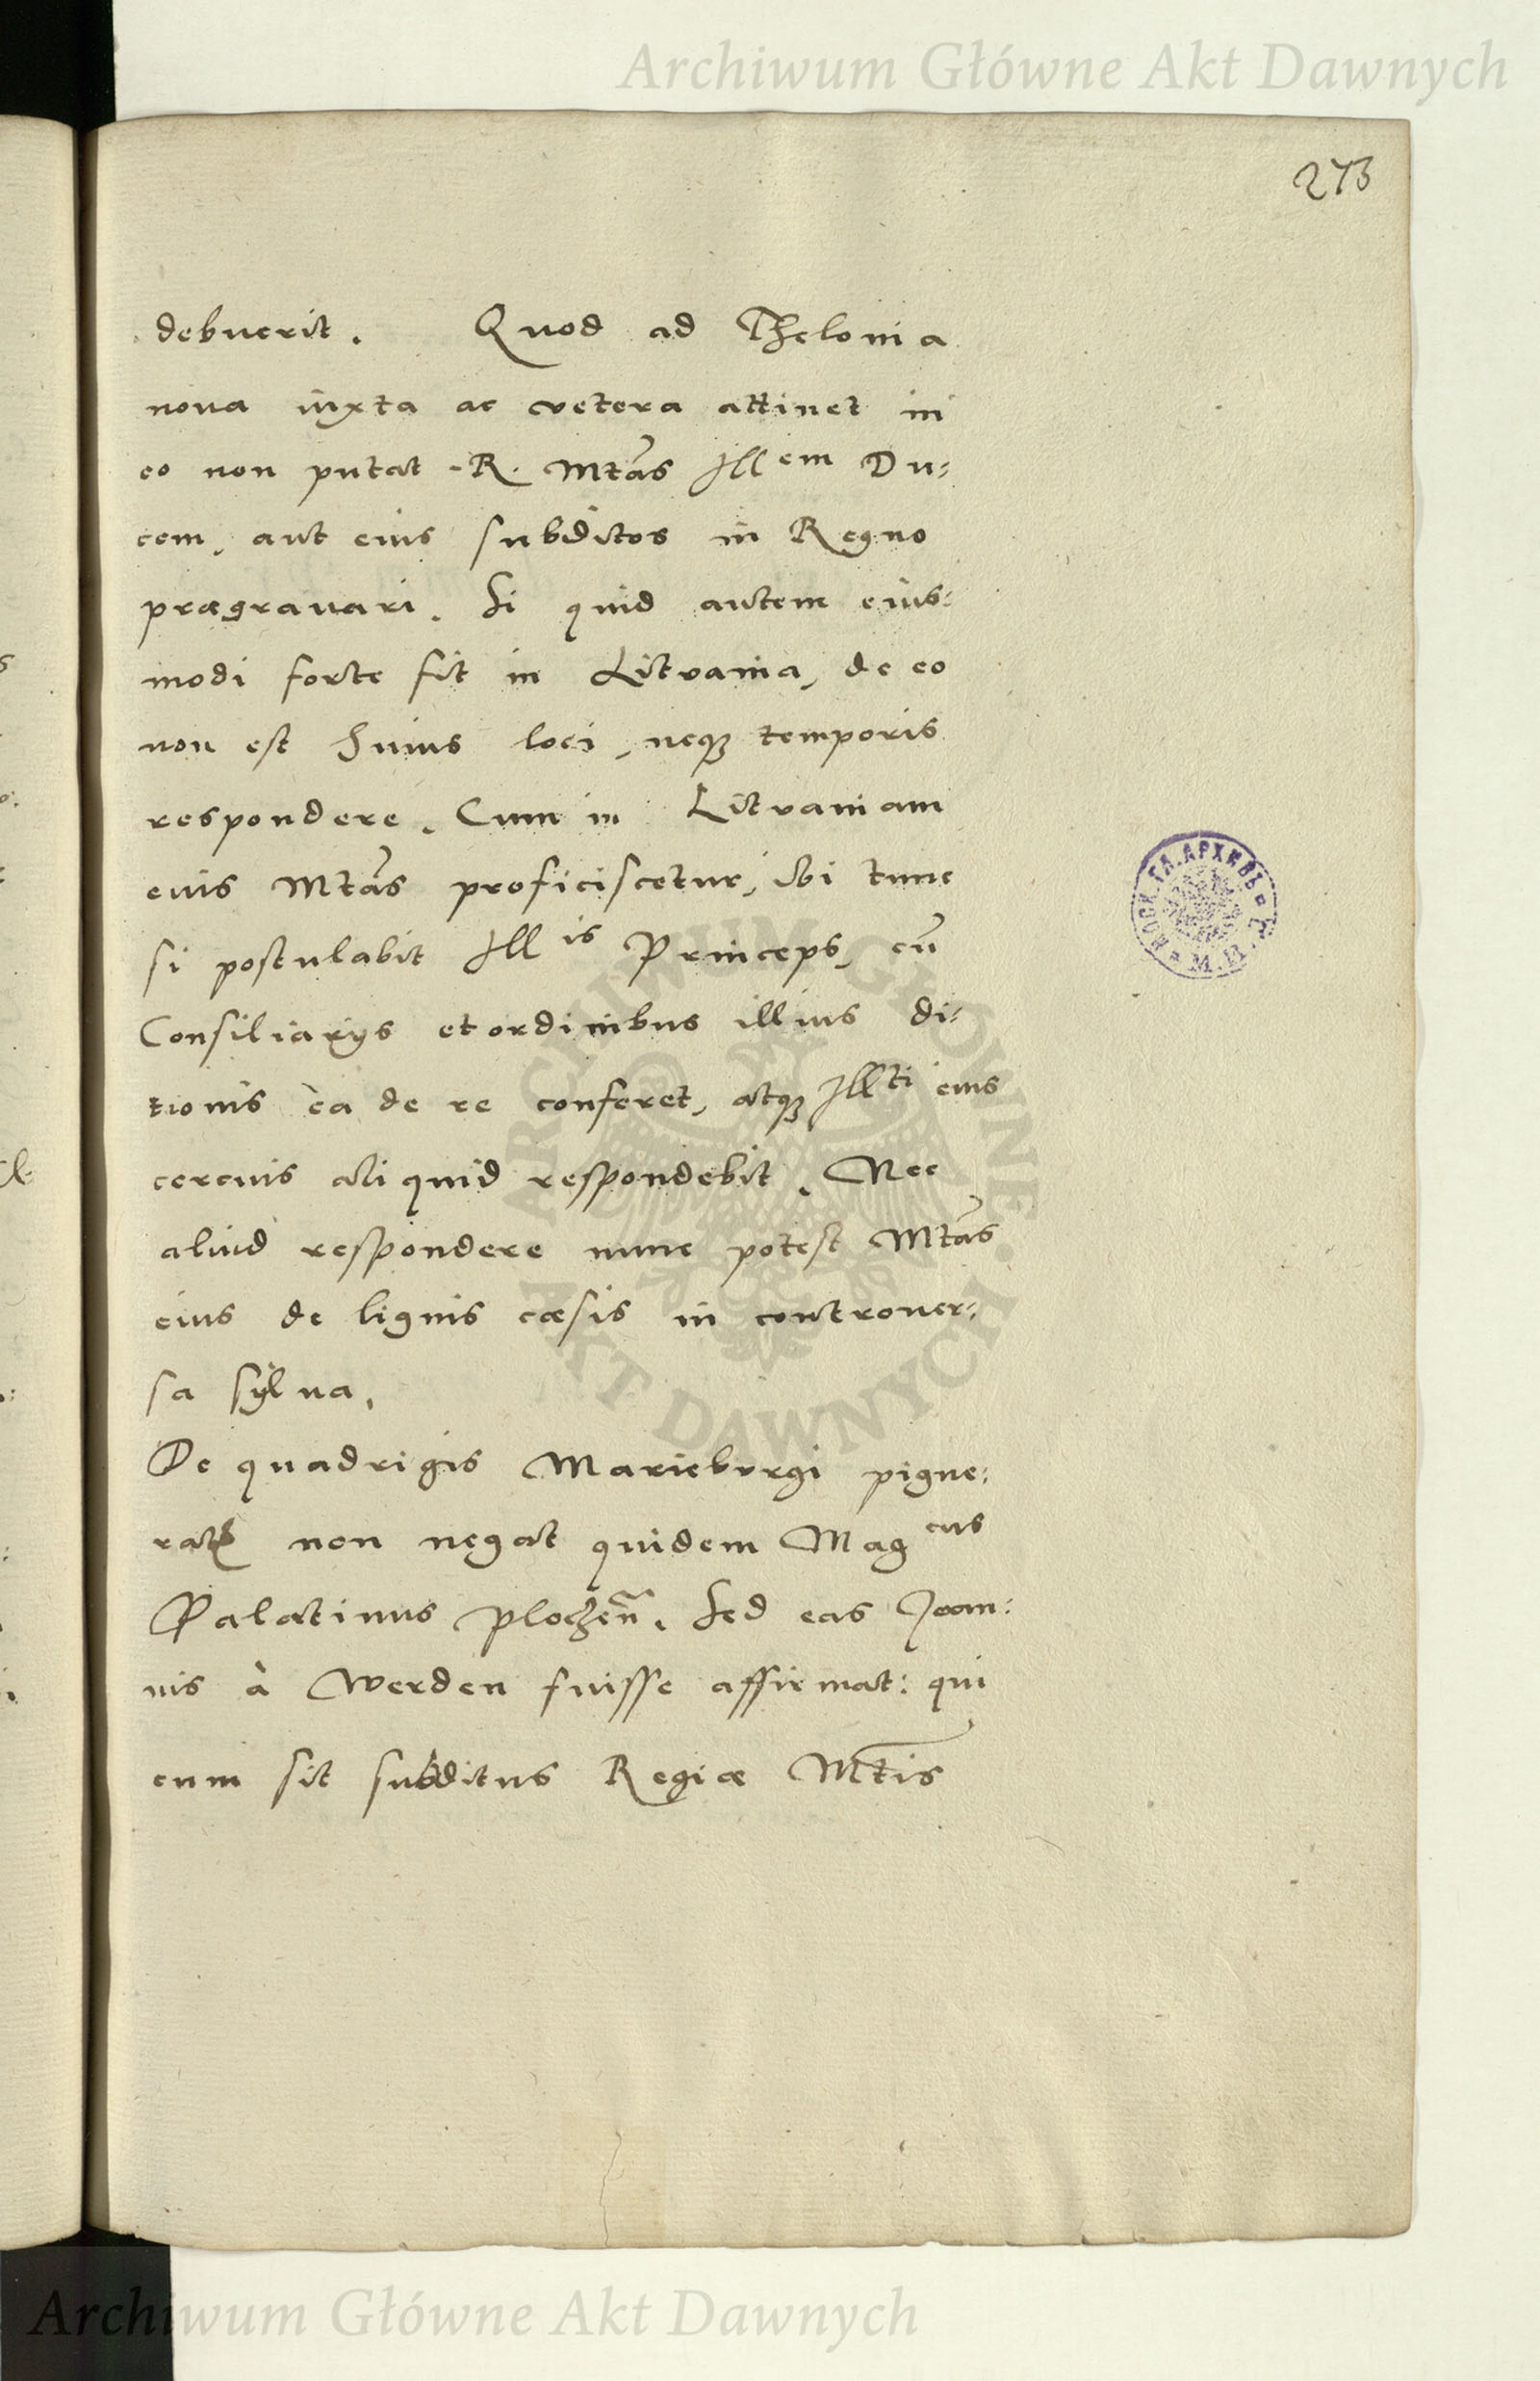 Archiwum Główne Akt Dawnych
273
debuerit. Quod ad Thelonia
noua iuxta ac vetera attinet in
eo non putat R. Mtas Illem Du:
cem, aut eius subditos in Regno
prægrauari. Si quid autem eius:
modi forte fit in Lituania, de eo
non est huius loci, neqꝫ temporis
respondere. Cum in Lituaniam
eius Mtas proficiscetur, ibi tunc
si postulabit Illis Princeps, cū
Consiliarijs et ordinibus illius di:
tionis ea de re conferet, atqꝫ Illti eius
cercius aliquid respondebit. Nec
aliud respondere nunc potest Mtas
eius de lignis cæsis in controuer:
sa sylua.
De quadrigis Marieburgi pigne:
ratis non negat quidem Magcus
Palatinus Ploczen̄. Sed eas Joan:
nis à Werden fuisse affirmat: qui
cum sit subditus Regiæ Mtis
МОСК. ГЛ. АРХИВЪ М. И. Д.
ARCHIWUM GŁÓWNE AKT DAWNYCH
Archiwum Główne Akt Dawnych